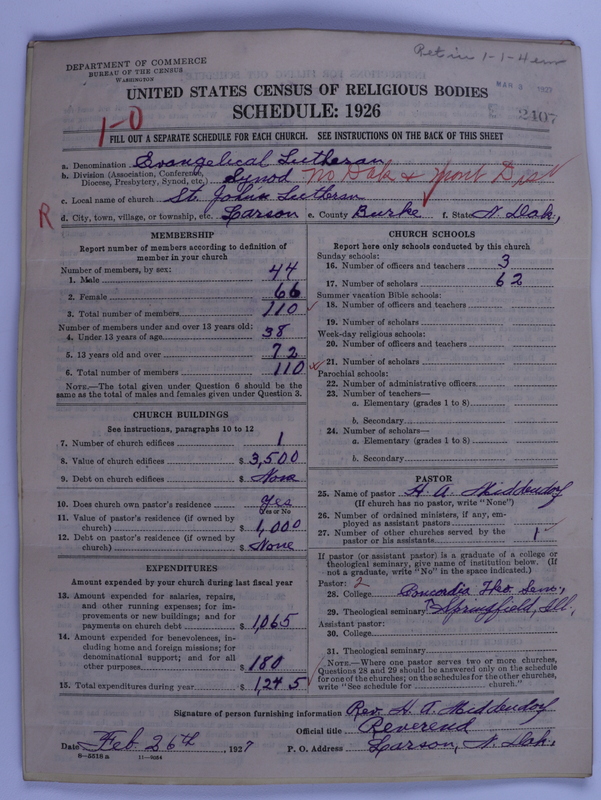 Ret in 1-1-4 em
DEPARTMENT OF COMMERCE
BUREAU OF THE CENSUS
WASHINGTON
MAR 3 1927
UNITED STATES CENSUS OF RELIGIOUS BODIES
SCHEDULE: 1926
2407
1-0
FILL OUT A SEPARATE SCHEDULE FOR EACH CHURCH. SEE INSTRUCTIONS ON THE BACK OF THIS SHEET
a. Denomination Evangelical Lutheran
b. Division (Association, Conference, Diocese, Presbytery, Synod, etc.) Synod No Dak & Mont Dist
c. Local name of church St. John's Lutheran
R
d. City, town, village, or township, etc. Larson e. County Burke f. State N. Dak.,
MEMBERSHIP
Report number of members according to definition of
member in your church
Number of members, by sex:
1. Male 44
2. Female 66
3. Total number of members 110
Number of members under and over 13 years old:
4. Under 13 years of age 38
5. 13 years old and over 72
6. Total number of members 110
NOTE.—The total given under Question 6 should be the
same as the total of males and females given under Question 3.
CHURCH BUILDINGS
See instructions, paragraphs 10 to 12
7. Number of church edifices 1
8. Value of church edifices $ 3,500
9. Debt on church edifices $ None
10. Does church own pastor's residence Yes
Yes or No
11. Value of pastor's residence (if owned by
church) $ 1,000
12. Debt on pastor's residence (if owned by
church) $ None
EXPENDITURES
Amount expended by your church during last fiscal year
13. Amount expended for salaries, repairs,
and other running expenses; for im-
provements or new buildings; and for
payments on church debt $ 1,065
14. Amount expended for benevolences, in-
cluding home and foreign missions; for
denominational support; and for all
other purposes $ 180
15. Total expenditures during year $ 1,245
CHURCH SCHOOLS
Report here only schools conducted by this church
Sunday schools:
16. Number of officers and teachers 3
17. Number of scholars 62
Summer vacation Bible schools:
18. Number of officers and teachers
19. Number of scholars
Week-day religious schools:
20. Number of officers and teachers
21. Number of scholars
Parochial schools:
22. Number of administrative officers
23. Number of teachers—
a. Elementary (grades 1 to 8)
b. Secondary
24. Number of scholars—
a. Elementary (grades 1 to 8)
b. Secondary
PASTOR
25. Name of pastor H. A. Middendorf
(If church has no pastor, write "None")
26. Number of ordained ministers, if any, em-
ployed as assistant pastors
27. Number of other churches served by the
pastor or his assistants 1
If pastor (or assistant pastor) is a graduate of a college or
theological seminary, give name of institution below. (If
not a graduate, write "No" in the space indicated.)
Pastor: 2
28. College Concordia Theo. Sem.,
29. Theological seminary Springfield, Ill.
Assistant pastor:
30. College
31. Theological seminary
NOTE.—Where one pastor serves two or more churches,
Questions 28 and 29 should be answered only on the schedule
for one of the churches; on the schedules for the other churches,
write "See schedule for church."
Signature of person furnishing information Rev. H. A. Middendorf
Official title Reverend
Date Feb. 26th, 1927 P. O. Address Larson, N. Dak.,
8-5518a 11-9084